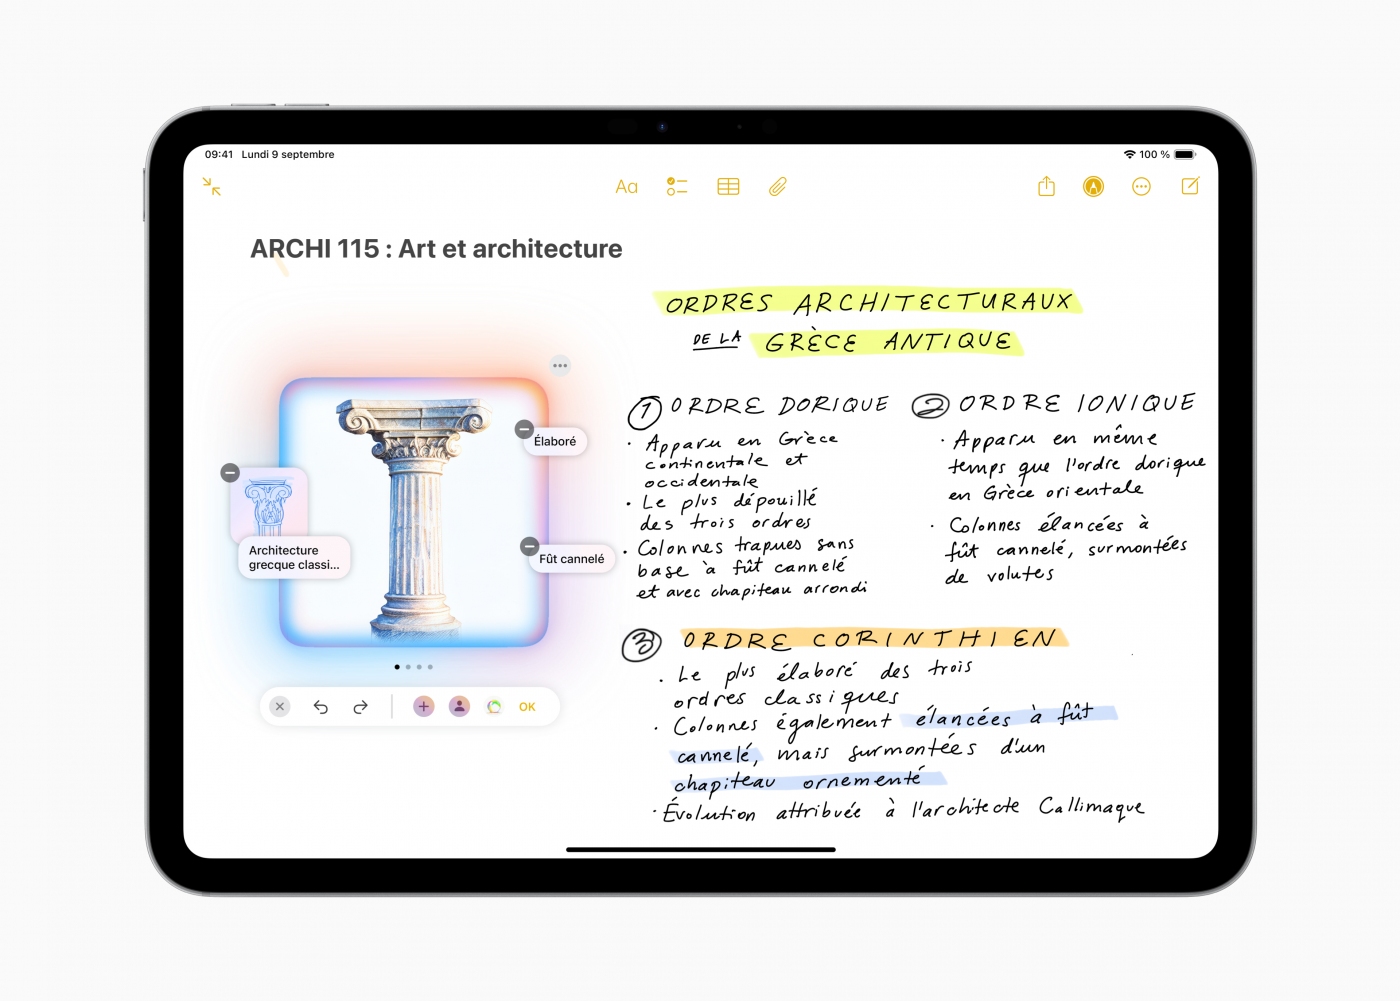 09:41 Lundi 9 septembre
100 %
Aa
ARCHI 115 : Art et architecture
ORDRES ARCHITECTURAUX
DE LA GRÈCE ANTIQUE
Élaboré
Architecture
grecque classi...
Fût cannelé
OK
1 ORDRE DORIQUE
· Apparu en Grèce
continentale et
occidentale
· Le plus dépouillé
des trois ordres
· Colonnes trapues sans
base à fût cannelé
et avec chapiteau arrondi
2 ORDRE IONIQUE
· Apparu en même
temps que l'ordre dorique
en Grèce orientale
· Colonnes élancées à
fût cannelé, surmontées
de volutes
3 ORDRE CORINTHIEN
· Le plus élaboré des trois
ordres classiques
· Colonnes également élancées à fût
cannelé, mais surmontées d'un
chapiteau ornementé
· Évolution attribuée à l'architecte Callimaque